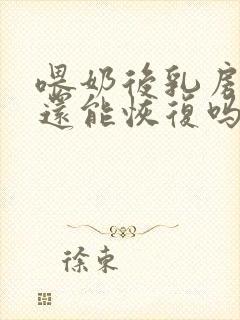 喂奶後乳房
還能恢復嗎
徐東